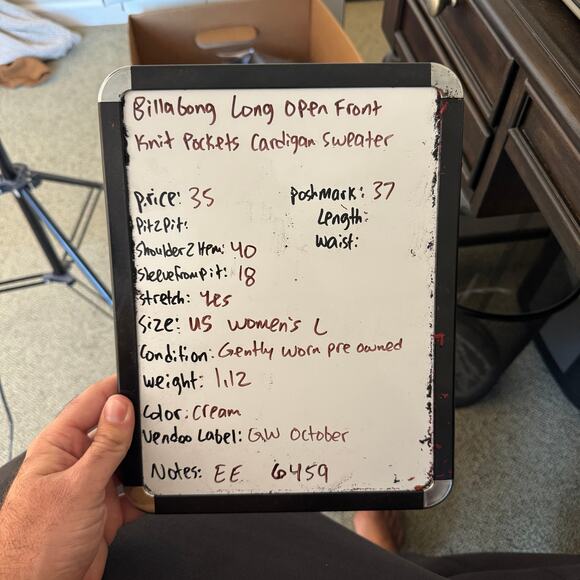 Billabong Long Open Front
Knit Pockets Cardigan Sweater
Price: 35
Poshmark: 37
Pit2Pit:
Length:
Shoulder2Hem: 40
Waist:
Sleevefrompit: 18
Stretch: Yes
Size: US Women's L
Condition: Gently worn pre owned
Weight: 1.12
Color: Cream
Vendoo Label: GW October
Notes: EE 6459